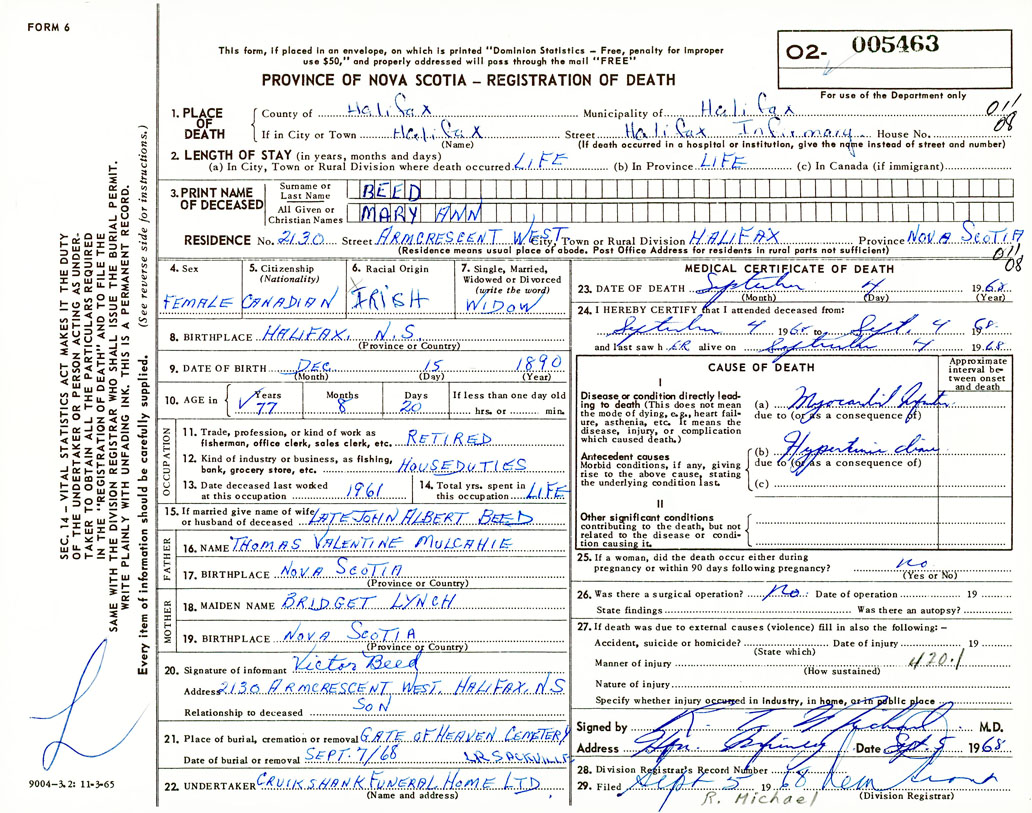 FORM 6
This form, if placed in an envelope, on which is printed "Dominion Statistics – Free, penalty for improper
use $50," and properly addressed will pass through the mail "FREE"
PROVINCE OF NOVA SCOTIA – REGISTRATION OF DEATH
02- 005463
For use of the Department only
1. PLACE OF DEATH
County of Halifax Municipality of Halifax 011
If in City or Town Halifax Street Halifax Infirmary House No. 08
(Name) (If death occurred in a hospital or institution, give the name instead of street and number)
2. LENGTH OF STAY (in years, months and days)
(a) In City, Town or Rural Division where death occurred LIFE (b) In Province LIFE (c) In Canada (if immigrant)
3. PRINT NAME OF DECEASED
Surname or Last Name BEED
All Given or Christian Names MARY ANN
RESIDENCE No. 2130 Street ARMCRESCENT WEST City, Town or Rural Division HALIFAX Province NOVA SCOTIA
(Residence means usual place of abode. Post Office Address for residents in rural parts not sufficient) 011
08
4. Sex FEMALE
5. Citizenship (Nationality) CANADIAN
6. Racial Origin IRISH
7. Single, Married, Widowed or Divorced (write the word) WIDOW
8. BIRTHPLACE HALIFAX, N.S.
(Province or Country)
9. DATE OF BIRTH DEC. 15 1890
(Month) (Day) (Year)
10. AGE in Years 77 Months 8 Days 20 If less than one day old hrs. or min.
OCCUPATION
11. Trade, profession, or kind of work as
fisherman, office clerk, sales clerk, etc. RETIRED
12. Kind of industry or business, as fishing,
bank, grocery store, etc. HOUSEDUTIES
13. Date deceased last worked
at this occupation 1961
14. Total yrs. spent in
this occupation LIFE
15. If married give name of wife
or husband of deceased LATE JOHN ALBERT BEED
FATHER
16. NAME THOMAS VALENTINE MULCAHIE
17. BIRTHPLACE NOVA SCOTIA
(Province or Country)
MOTHER
18. MAIDEN NAME BRIDGET LYNCH
19. BIRTHPLACE NOVA SCOTIA
(Province or Country)
20. Signature of informant Victor Beed
Address 2130 ARMCRESCENT WEST, HALIFAX, N.S
Relationship to deceased SON
21. Place of burial, cremation or removal GATE OF HEAVEN CEMETERY
Date of burial or removal SEPT. 7/68 LR. SACKVILLE
22. UNDERTAKER CRUIKSHANK FUNERAL HOME LTD
(Name and address)
MEDICAL CERTIFICATE OF DEATH
23. DATE OF DEATH September 4 1968
(Month) (Day) (Year)
24. I HEREBY CERTIFY that I attended deceased from:
September 4 1968 to Sept. 4 1968
and last saw h ER alive on September 4 1968
CAUSE OF DEATH
Approximate interval between onset and death
I
Disease or condition directly leading
to death (This does not mean
the mode of dying, e.g., heart failure,
asthenia, etc. It means the
disease, injury, or complication
which caused death.)
(a) Myocardial
due to (or as a consequence of)
Antecedent causes
Morbid conditions, if any, giving
rise to the above cause, stating
the underlying condition last.
(b)
due to (or as a consequence of)
(c)
II
Other significant conditions
contributing to the death, but not
related to the disease or condition
causing it.
25. If a woman, did the death occur either during
pregnancy or within 90 days following pregnancy? no
(Yes or No)
26. Was there a surgical operation? no. Date of operation 19
State findings Was there an autopsy?
27. If death was due to external causes (violence) fill in also the following: –
Accident, suicide or homicide? Date of injury 19
(State which)
Manner of injury 420.1
(How sustained)
Nature of injury
Specify whether injury occurred in industry, in home, or in public place
Signed by M.D.
Address Date Sept. 5 1968
28. Division Registrar's Record Number
29. Filed Sept 5 1968
R. Michael (Division Registrar)
SEC. 14 – VITAL STATISTICS ACT MAKES IT THE DUTY
OF THE UNDERTAKER OR PERSON ACTING AS UNDER-
TAKER TO OBTAIN ALL THE PARTICULARS REQUIRED
IN THE "REGISTRATION OF DEATH" AND TO FILE THE
SAME WITH THE DIVISION REGISTRAR WHO SHALL ISSUE THE BURIAL PERMIT.
WRITE PLAINLY WITH UNFADING INK. THIS IS A PERMANENT RECORD.
Every item of information should be carefully supplied. (See reverse side for instructions.)
9004–3.2: 11-3-65